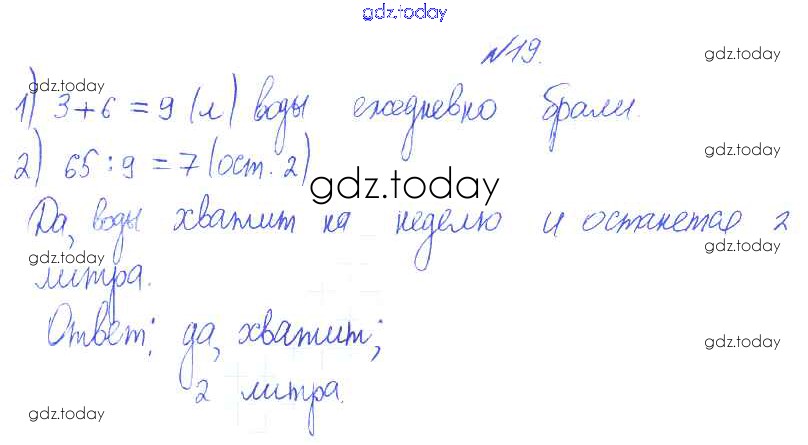 gdz.today
№19.
gdz.today
gdz.today
1) 3+6 = 9 (л) воды ежедневно брали.
gdz.today
2) 65 : 9 = 7 (ост. 2)
gdz.today
Да, воды хватит на неделю и останется 2
gdz.today
gdz.today
литра.
Ответ: да, хватит;
gdz.today
2 литра.
gdz.today